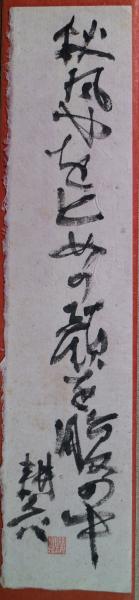 秋風やをとめの顔をの中
耕衣